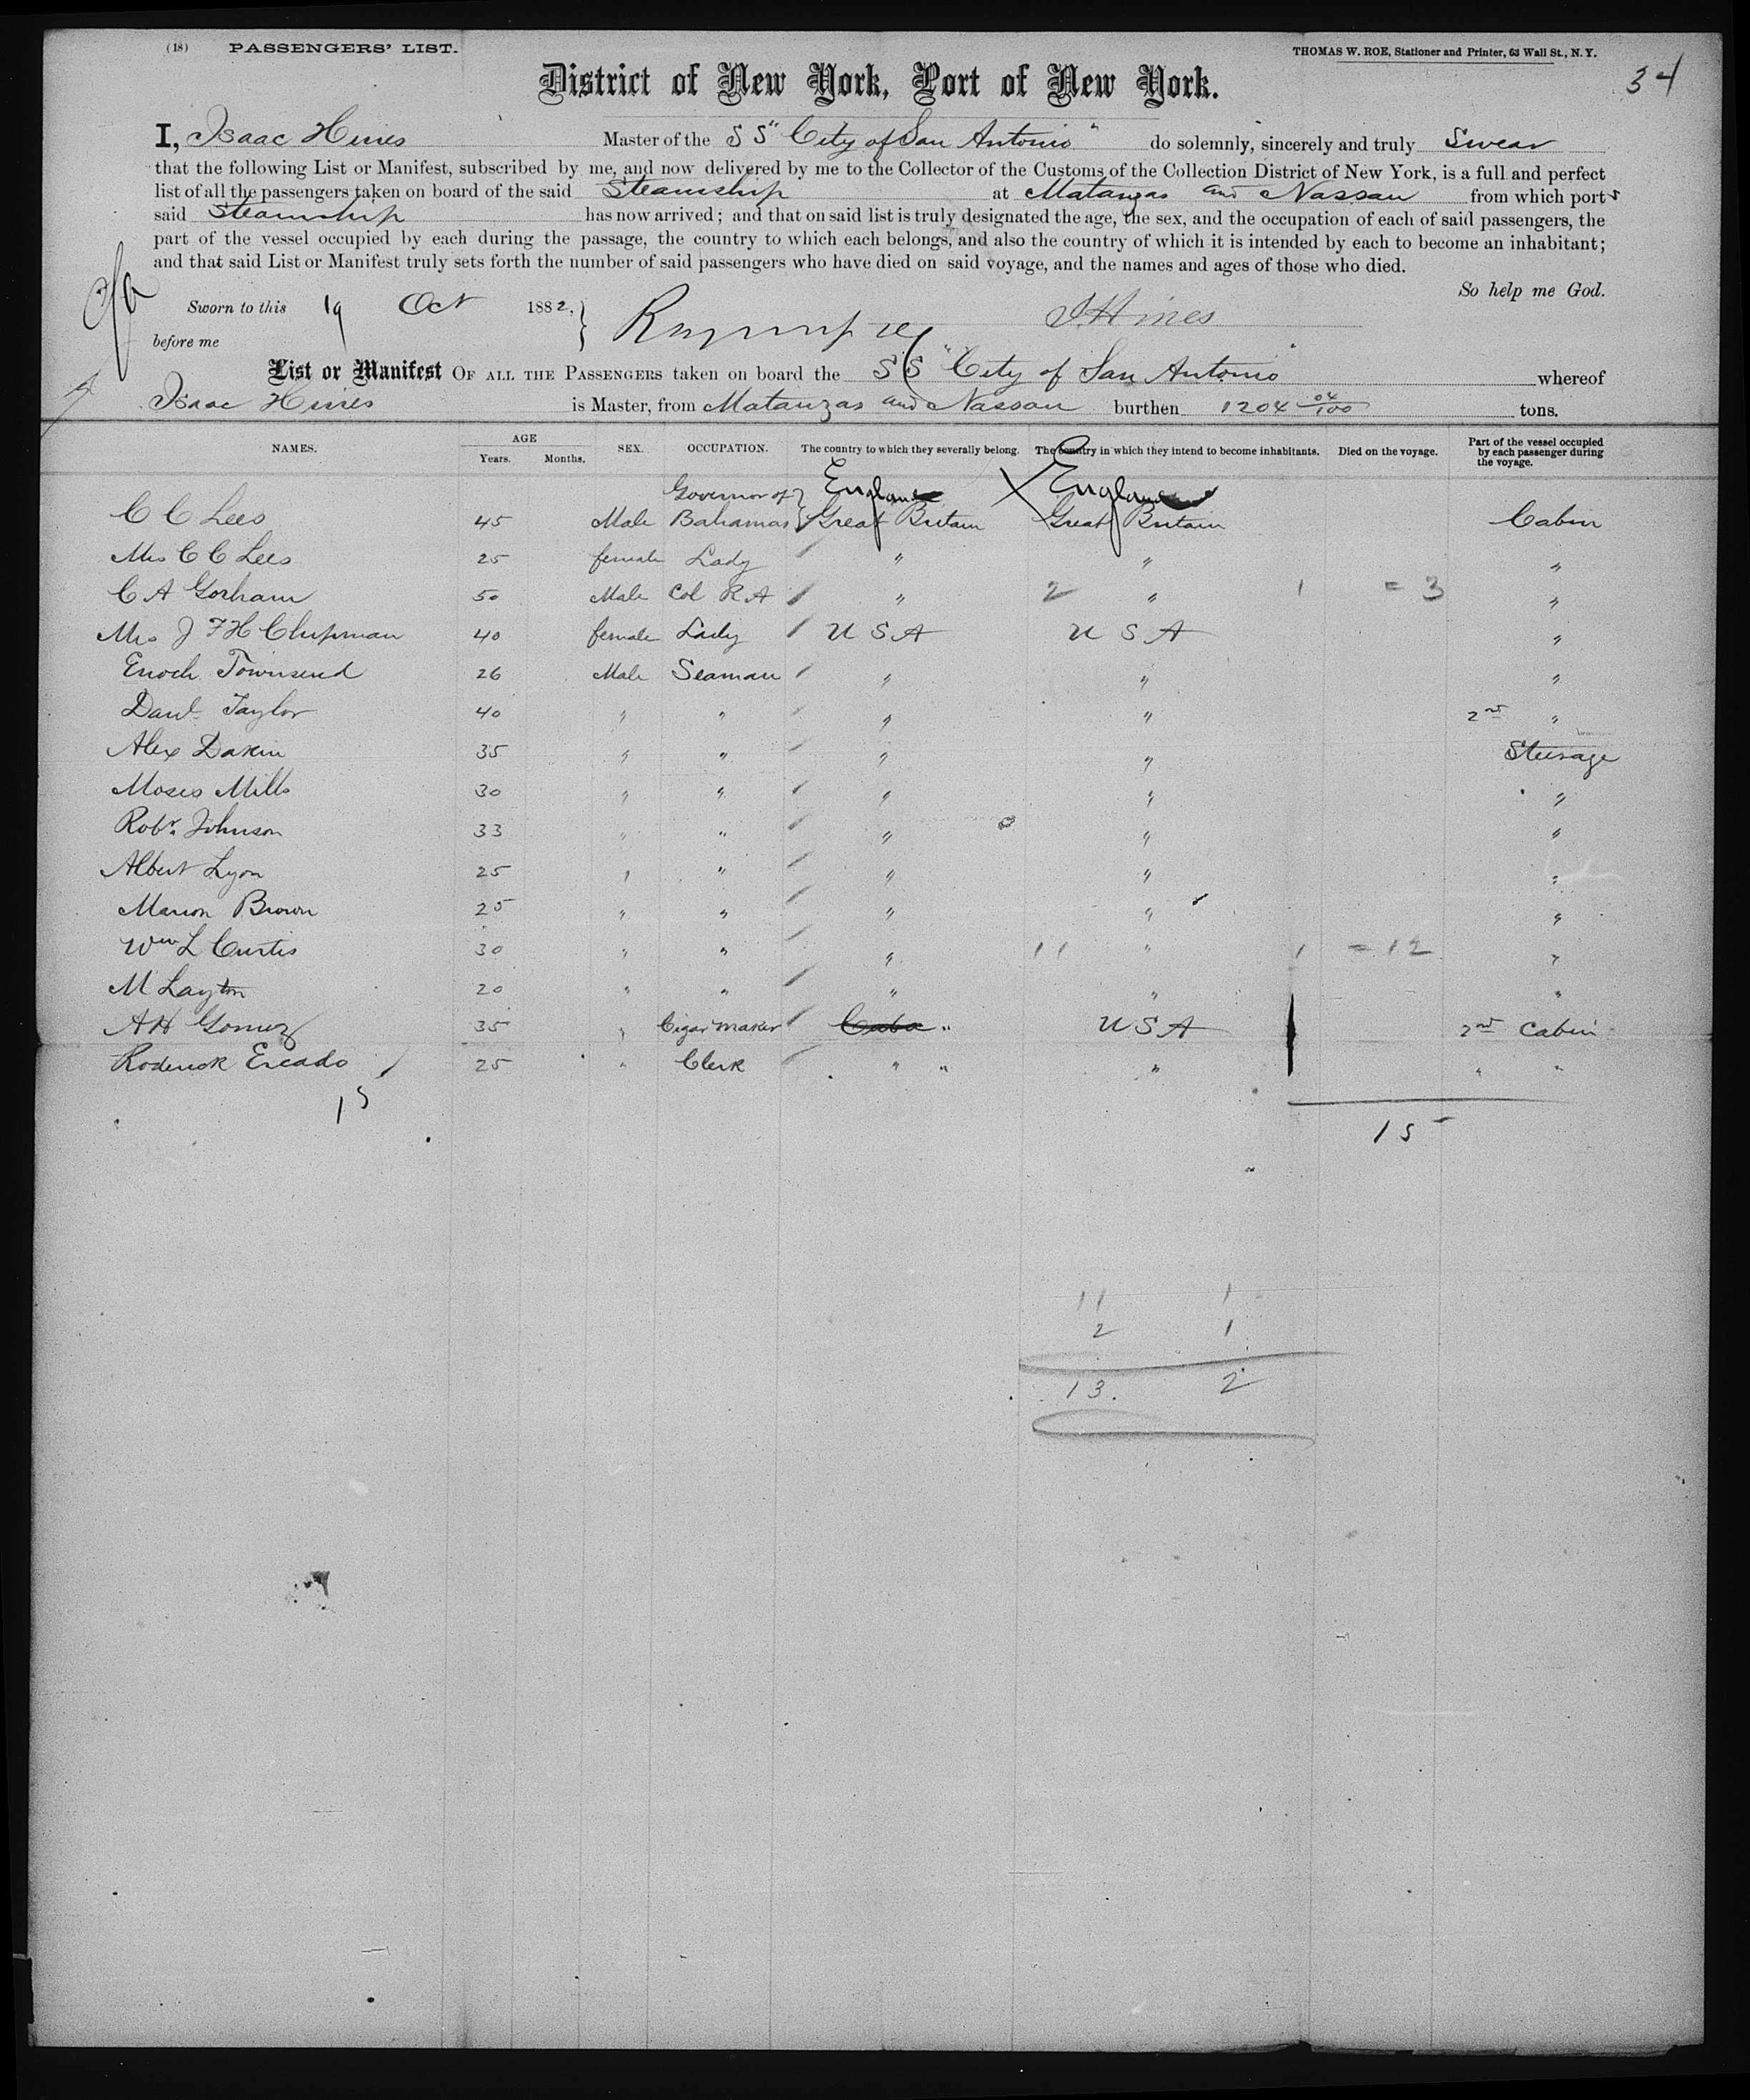 (18) PASSENGERS' LIST.
THOMAS W. ROE, Stationer and Printer, 63 Wall St., N. Y.
34
District of New York, Port of New York.
I, Isaac Hines Master of the S S "City of San Antonio" do solemnly, sincerely and truly Swear
that the following List or Manifest, subscribed by me, and now delivered by me to the Collector of the Customs of the Collection District of New York, is a full and perfect
list of all the passengers taken on board of the said Steamship at Matanzas and Nassau from which ports
said Steamship has now arrived; and that on said list is truly designated the age, the sex, and the occupation of each of said passengers, the
part of the vessel occupied by each during the passage, the country to which each belongs, and also the country of which it is intended by each to become an inhabitant;
and that said List or Manifest truly sets forth the number of said passengers who have died on said voyage, and the names and ages of those who died.
So help me God.
Sworn to this 19 Oct 1882, }
before me
I Hines
List or Manifest OF ALL THE PASSENGERS taken on board the SS "City of San Antonio" whereof
Isaac Hines is Master, from Matanzas and Nassau burthen 1204 04/100 tons.
NAMES. AGE Years. Months. SEX. OCCUPATION. The country to which they severally belong. The country in which they intend to become inhabitants. Died on the voyage. Part of the vessel occupied by each passenger during the voyage.
Governor of } England X England
C C Lees 45 Male Bahamas Great Britain Great Britain Cabin
Mrs C C Lees 25 female Lady " " "
C A Gorham 50 Male Col R A " 2 " 1 = 3 "
Mrs J F H Chipman 40 female Lady U S A U S A "
Enoch Townsend 26 Male Seaman " " "
Danl Taylor 40 " " " " 2nd "
Alex Dakin 35 " " " " Steerage
Moses Mills 30 " " " " "
Robt. Johnson 33 " " " " "
Albert Lyon 25 " " " " "
Marion Brown 25 " " " " "
Wm L Curtis 30 " " " 11 " 1 = 12 "
M Layton 20 " " " " "
A H Gomez 35 " Cigar maker Cuba " U S A 2nd Cabin
Roderick Ercado 25 " Clerk " " " " "
15
15
11 1
2 1
13. 2